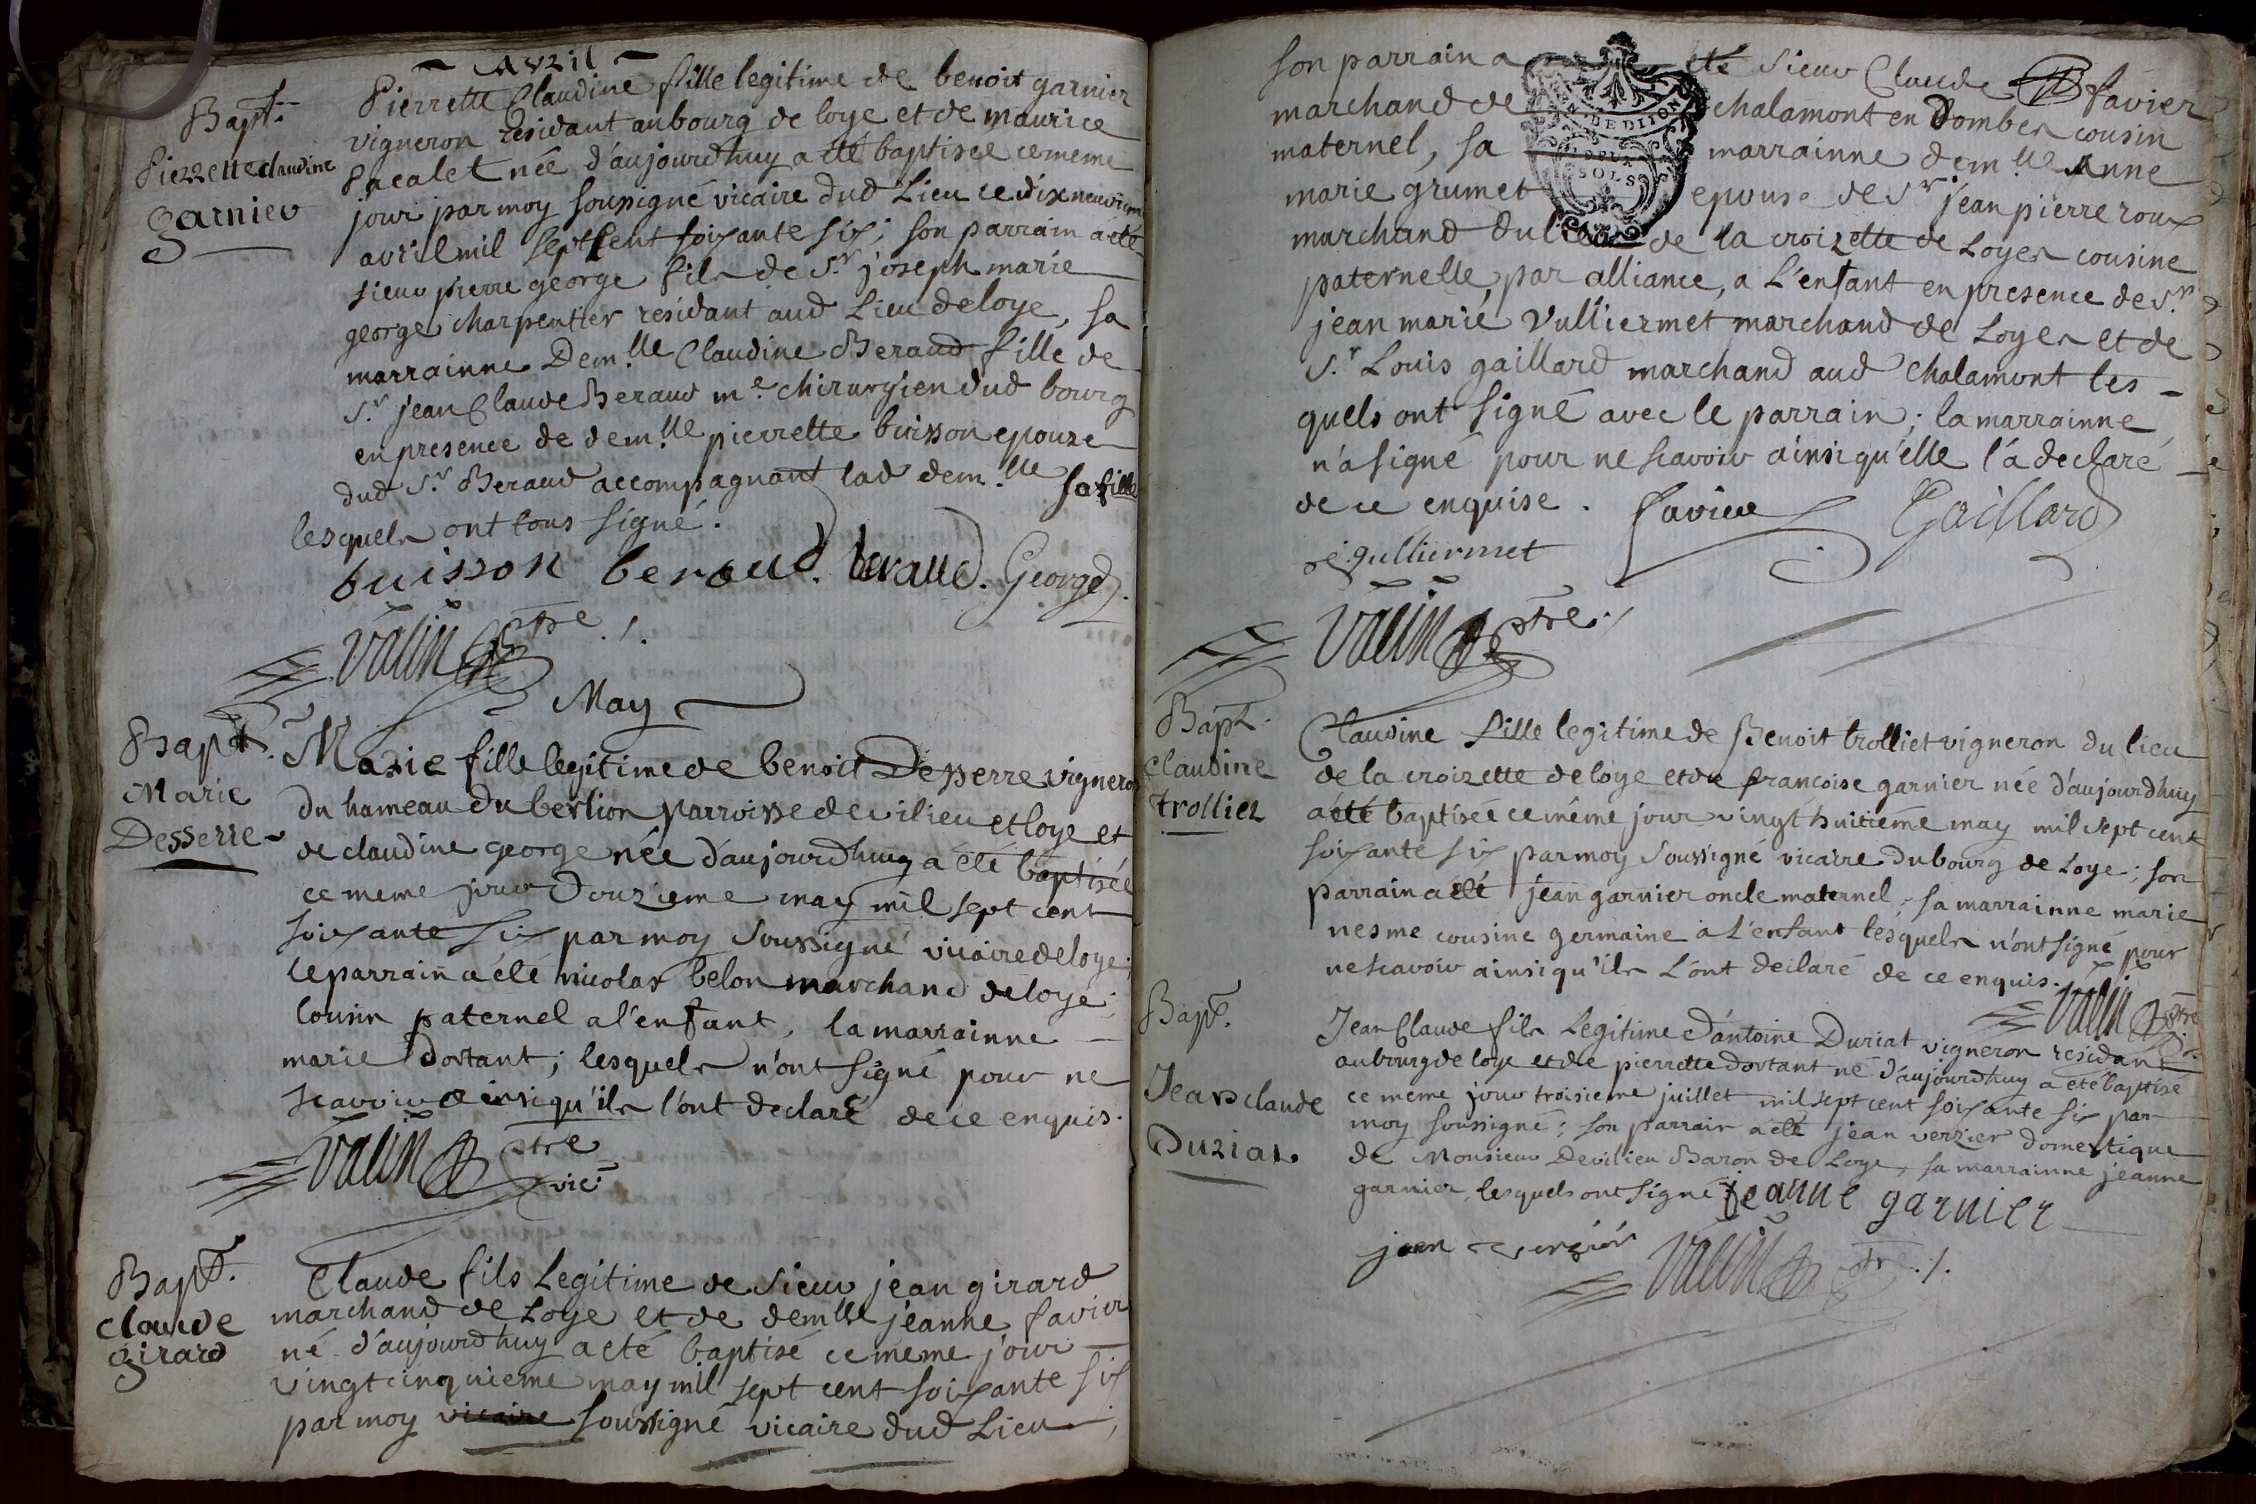 Avril
Bapt.
Pierrette claudine
garnier
Pierrette Claudine fille legitime de benoit garnier
vigneron residant au bourg de loye et de maurice
Pacalet née d'aujourdhuy a été baptisée ce meme
jour par moy soussigné vicaire dud Lieu ce dix neuviem
avril mil sept cent soixante six; son parrain a été
sieur pierre george fils de Sr joseph marie
george charpentier residant aud Lieu de loye, sa
marrainne Demlle Claudine Beraud fille de
Sr jean Claude Beraud me chirurgien dud bourg
en presence de demlle pierrette buisson epouze
dud Sr Beraud accompagnant lad demlle sa fille
lesquels ont tous signé.
buisson beraud. beraud. George
Valin ptre
May
Bapt.
Marie
Desserre
Marie fille legitime de benoit Desserre vigneron
du hameau du berlion parroisse de vilieu et loye et
de claudine george née d'aujourdhuy a été baptisée
ce meme jour douzieme may mil sept cent
soixante six par moy soussigné vicaire de loye;
le parrain a été nicolas belon marchand de loye
cousin paternel a l'enfant, la marrainne
marie dortant; lesquels n'ont signé pour ne
scavoir ainsi qu'ils l'ont declaré de ce enquis.
Valin ptre
vic.
Bapt.
claude
girard
Claude fils Legitime de sieur jean girard
marchand de Loye et de demlle jeanne favier
né d'aujourdhuy a été baptisé ce même jour
vingt cinquieme may mil sept cent soixante six
par moy vicaire soussigné vicaire dud Lieu;
son parrain a été sieur Claude favier
marchand de chalamont en Dombes cousin
maternel, sa marrainne demlle Anne
marie grumet epouse de Sr jean pierre roux
marchand du lieu de la croizette de Loyes cousine
paternelle, par alliance, a L'enfant en presence de Sr
jean marie Vulliermet marchand de Loyes et de
Sr Louis gaillard marchand aud chalamont les
quels ont signé avec le parrain; la marrainne
n'a signé pour ne scavoir ainsi qu'elle l'a declaré
de ce enquise. favier Gaillard
DE DIJON
SOLS
Vulliermet
Valin ptre
Bapt.
Claudine
trolliet
Claudine fille legitime de Benoit trolliet vigneron du lieu
de la croizette de loye et de françoise garnier née d'aujourdhuy
a été baptisée ce même jour vingt huitiéme may mil sept cent
soixante six par moy soussigné vicaire du bourg de Loye; son
parrain a été jean garnier oncle maternel, sa marrainne marie
nesme cousine germaine à L'enfant lesquels n'ont signé pour
ne scavoir ainsi qu'ils L'ont declaré de ce enquis.
Valin ptre
Bapt.
Jean claude
Duriat
Jean Claude fils Legitime d'antoine Duriat vigneron residant
au bourg de loye et de pierrette dortant né d'aujourdhuy a été baptisé
ce meme jour troisieme juillet mil sept cent soixante six par
moy soussigné; son parrain a été jean verzier domestique
de Monsieur Devilieu Baron de Loye, sa marrainne jeanne
garnier, lesquels ont signé jeanne garnier
jean verzier
Valin ptre